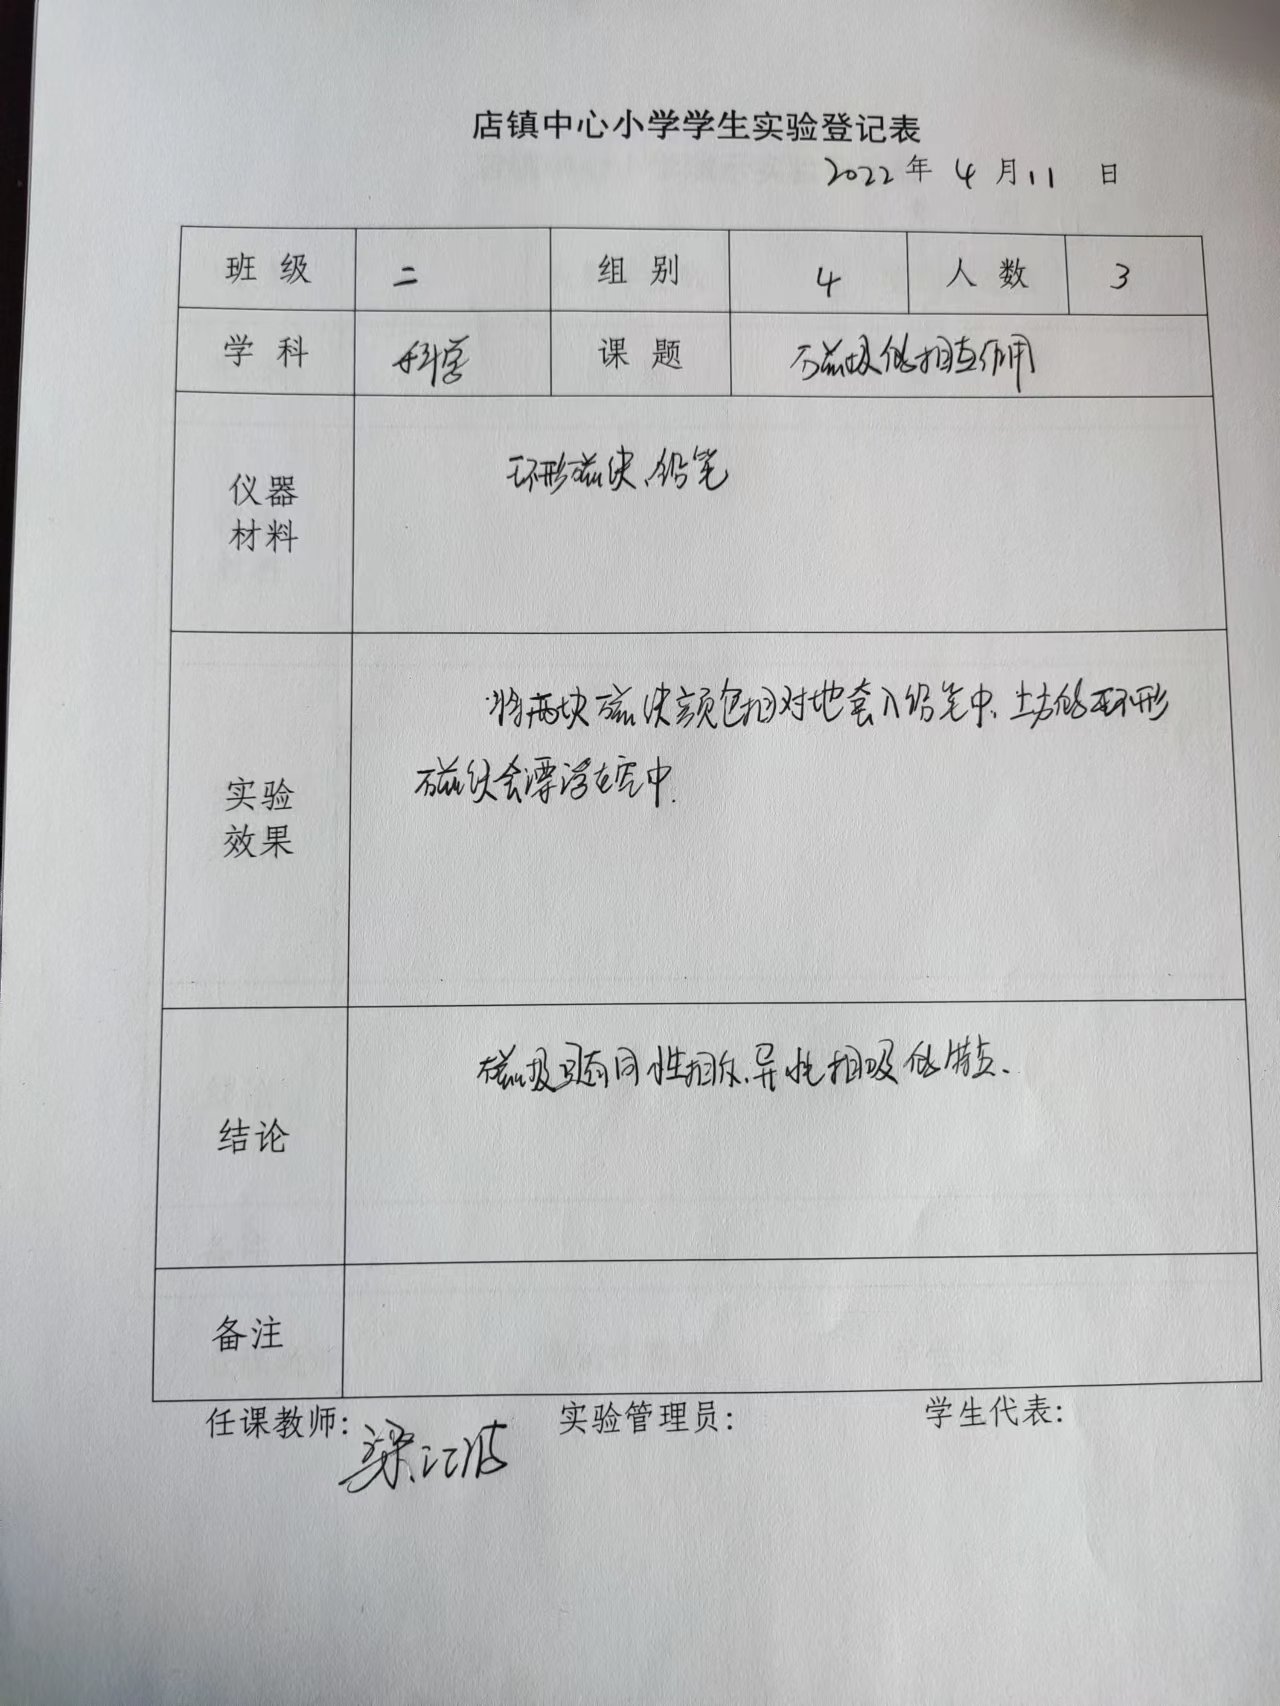 店镇中心小学学生实验登记表
2022年 4月11 日
班级 二 组别 4 人数 3
学科 科学 课题 磁极的相互作用
仪器
材料
环形磁铁、铅笔
实验
效果
将两块磁铁颜色相对地套入铅笔中,上方的环形
磁铁会漂浮在空中.
结论
磁极具有同性相斥,异性相吸的特点.
备注
任课教师: 梁江波 实验管理员: 学生代表: